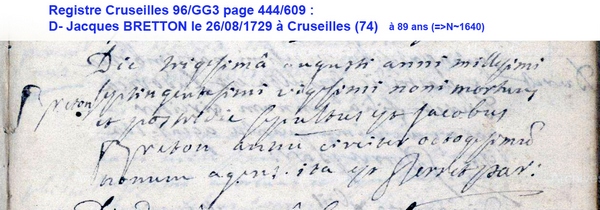 Registre Cruseilles 96/GG3 page 444/609 :
D- Jacques BRETTON le 26/08/1729 à Cruseilles (74) à 89 ans (=>N~1640)
Die vigesimâ augusti anni millesimi
septingentesimi vigesimi noni mortuus
Breton et postridie sepultus est Jacobus
Breton annum circiter octogesimū
nonum agens. ita est par: